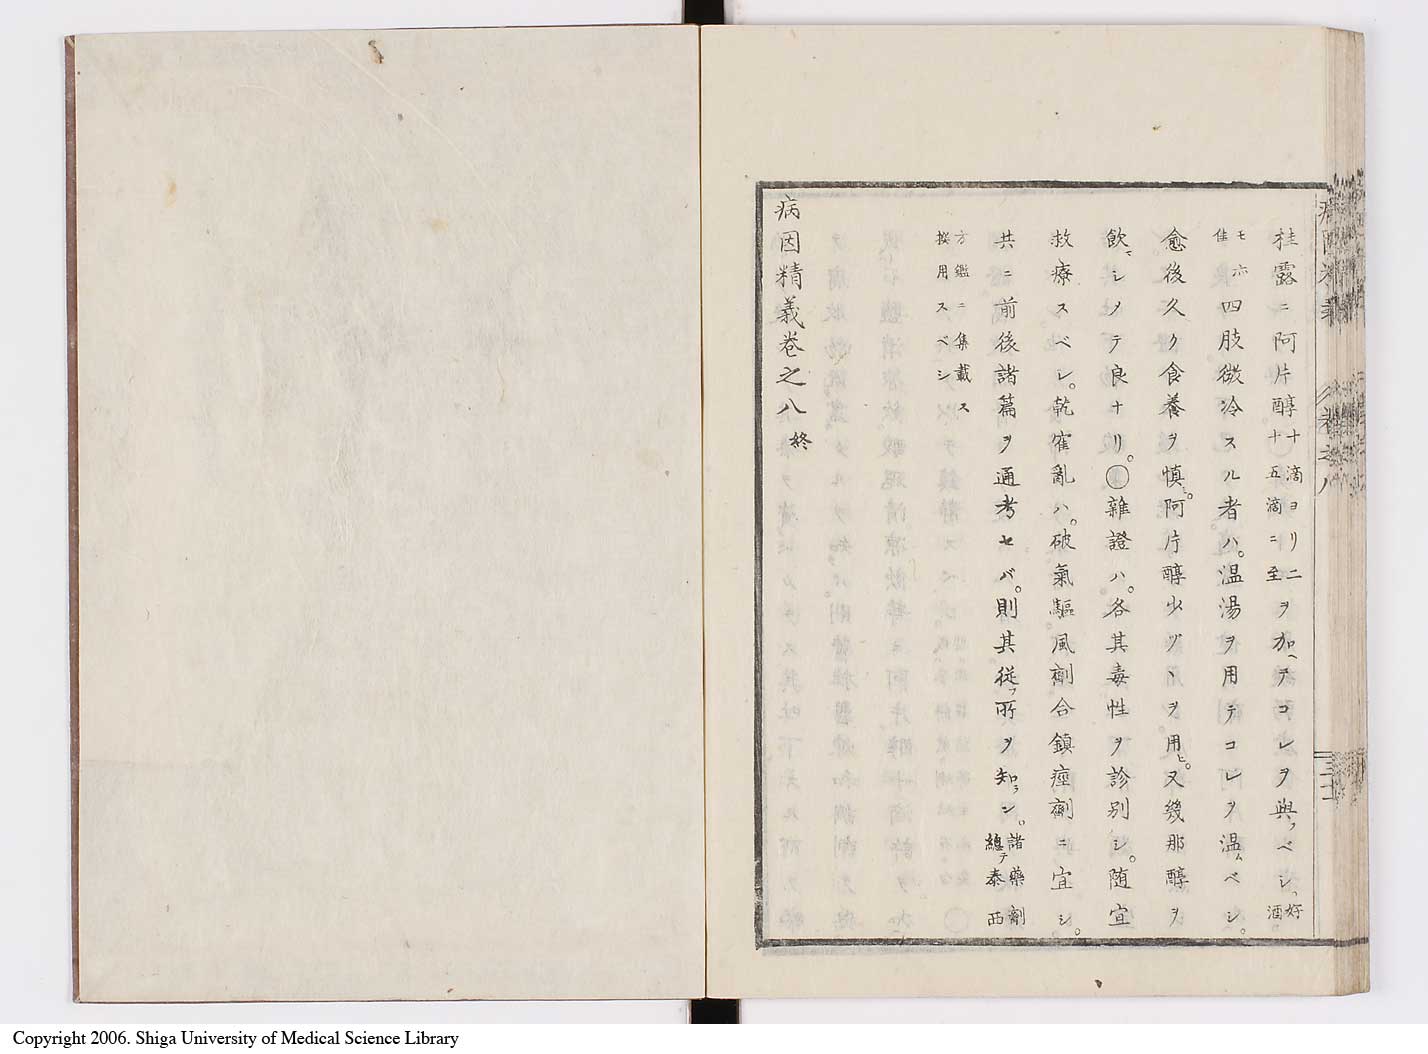 桂露ニ阿片醇十滴ヨリ二十五滴ニ至ヲ加ヘテコレヲ與フベシ、好酒
モ亦佳四肢微冷スル者ハ。温湯ヲ用テコレヲ温ムベシ。
愈後久ク食養ヲ慎ミ。阿片醇少ヅヽヲ用ヒ。又幾那醇ヲ
飲マシメテ良ナリ。◯雜證ハ。各其毒性ヲ診別シ。随宜
救療スベシ。乾霍亂ハ。破氣驅風劑合鎮痙劑ニ宜シ。
共ニ前後諸篇ヲ通考セバ。則其従フ所ヲ知ラン。諸藥劑總テ泰西
方鑑ニ集載ス撰用スベシ
病因精義卷之八終
病因精義 八卷之八
Copyright 2006. Shiga University of Medical Science Library